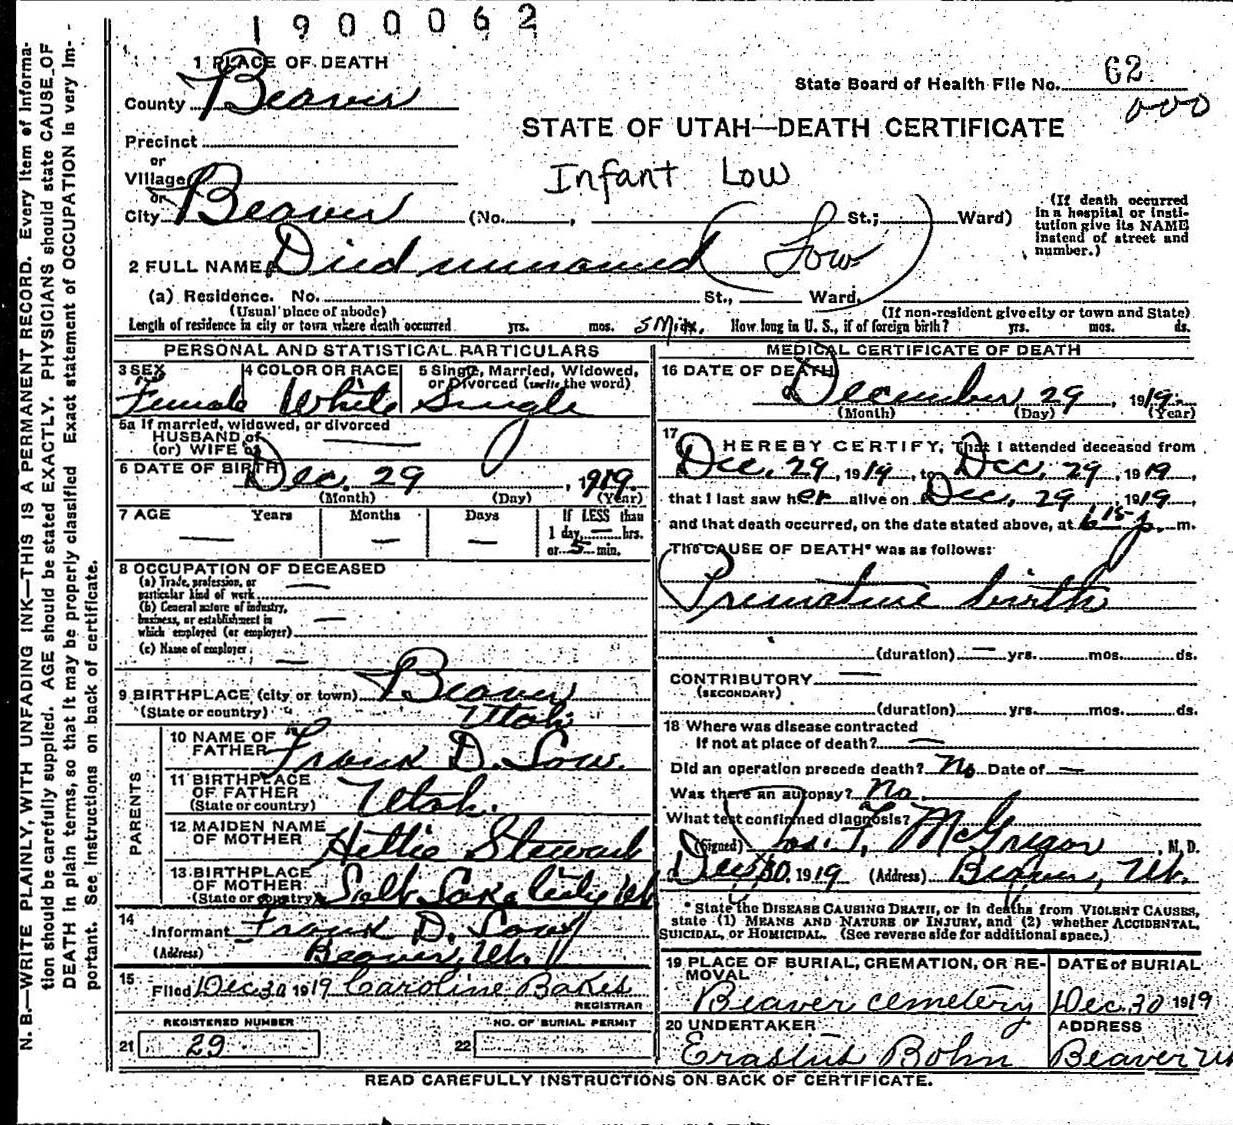 1900062
1 PLACE OF DEATH
County Beaver
State Board of Health File No. 62
000
STATE OF UTAH—DEATH CERTIFICATE
Precinct
or
Village
or
City Beaver (No. , St.; Ward)
Infant Low
(If death occurred in a hospital or institution give its NAME instead of street and number.)
2 FULL NAME Died unnamed (Low)
(a) Residence. No. St., Ward.
(Usual place of abode) (If non-resident give city or town and State)
Length of residence in city or town where death occurred yrs. mos. 5 Min. How long in U. S., if of foreign birth? yrs. mos. ds.
PERSONAL AND STATISTICAL PARTICULARS
3 SEX Female
4 COLOR OR RACE White
5 Single, Married, Widowed, or Divorced (write the word) Single
5a If married, widowed, or divorced
HUSBAND of
(or) WIFE of —
6 DATE OF BIRTH Dec. 29, 1919.
(Month) (Day) (Year)
7 AGE Years Months Days If LESS than
— — — 1 day, — hrs.
or 5 min.
8 OCCUPATION OF DECEASED
(a) Trade, profession, or particular kind of work —
(b) General nature of industry, business, or establishment in which employed (or employer) —
(c) Name of employer —
9 BIRTHPLACE (city or town) Beaver
(State or country) Utah
PARENTS
10 NAME OF FATHER Frank D. Low.
11 BIRTHPLACE OF FATHER (State or country) Utah.
12 MAIDEN NAME OF MOTHER Hettie Steward
13 BIRTHPLACE OF MOTHER (State or country) Salt Lake City Ut
14 Informant Frank D. Low
(Address) Beaver, Ut.
15 Filed Dec 30 1919 Caroline Bakes
REGISTRAR
REGISTERED NUMBER
21 29
NO. OF BURIAL PERMIT
22
MEDICAL CERTIFICATE OF DEATH
16 DATE OF DEATH December 29, 1919.
(Month) (Day) (Year)
17 I HEREBY CERTIFY, That I attended deceased from
Dec. 29, 1919, to Dec. 29, 1919,
that I last saw her alive on Dec. 29, 1919,
and that death occurred, on the date stated above, at 6 15 p. m.
The CAUSE OF DEATH* was as follows:
Premature birth
(duration) — yrs. mos. ds.
CONTRIBUTORY —
(SECONDARY)
(duration) yrs. mos. ds.
18 Where was disease contracted
If not at place of death? —
Did an operation precede death? No Date of —
Was there an autopsy? No.
What test confirmed diagnosis?
(Signed) Jas. F. McGregor, M. D.
Dec 30, 1919 (Address) Beaver, Ut.
*State the DISEASE CAUSING DEATH, or in deaths from VIOLENT CAUSES,
state (1) MEANS AND NATURE OF INJURY, and (2) whether ACCIDENTAL,
SUICIDAL, or HOMICIDAL. (See reverse side for additional space.)
19 PLACE OF BURIAL, CREMATION, OR REMOVAL
Beaver cemetery
DATE of BURIAL
Dec. 30 1919
20 UNDERTAKER
Erastus Bohn
ADDRESS
Beaver Ut
READ CAREFULLY INSTRUCTIONS ON BACK OF CERTIFICATE.
N. B.—WRITE PLAINLY, WITH UNFADING INK—THIS IS A PERMANENT RECORD. Every item of Informa-
tion should be carefully supplied. AGE should be stated EXACTLY. PHYSICIANS should state CAUSE OF
DEATH in plain terms, so that it may be properly classified. Exact statement of OCCUPATION is very Im-
portant. See Instructions on back of certificate.